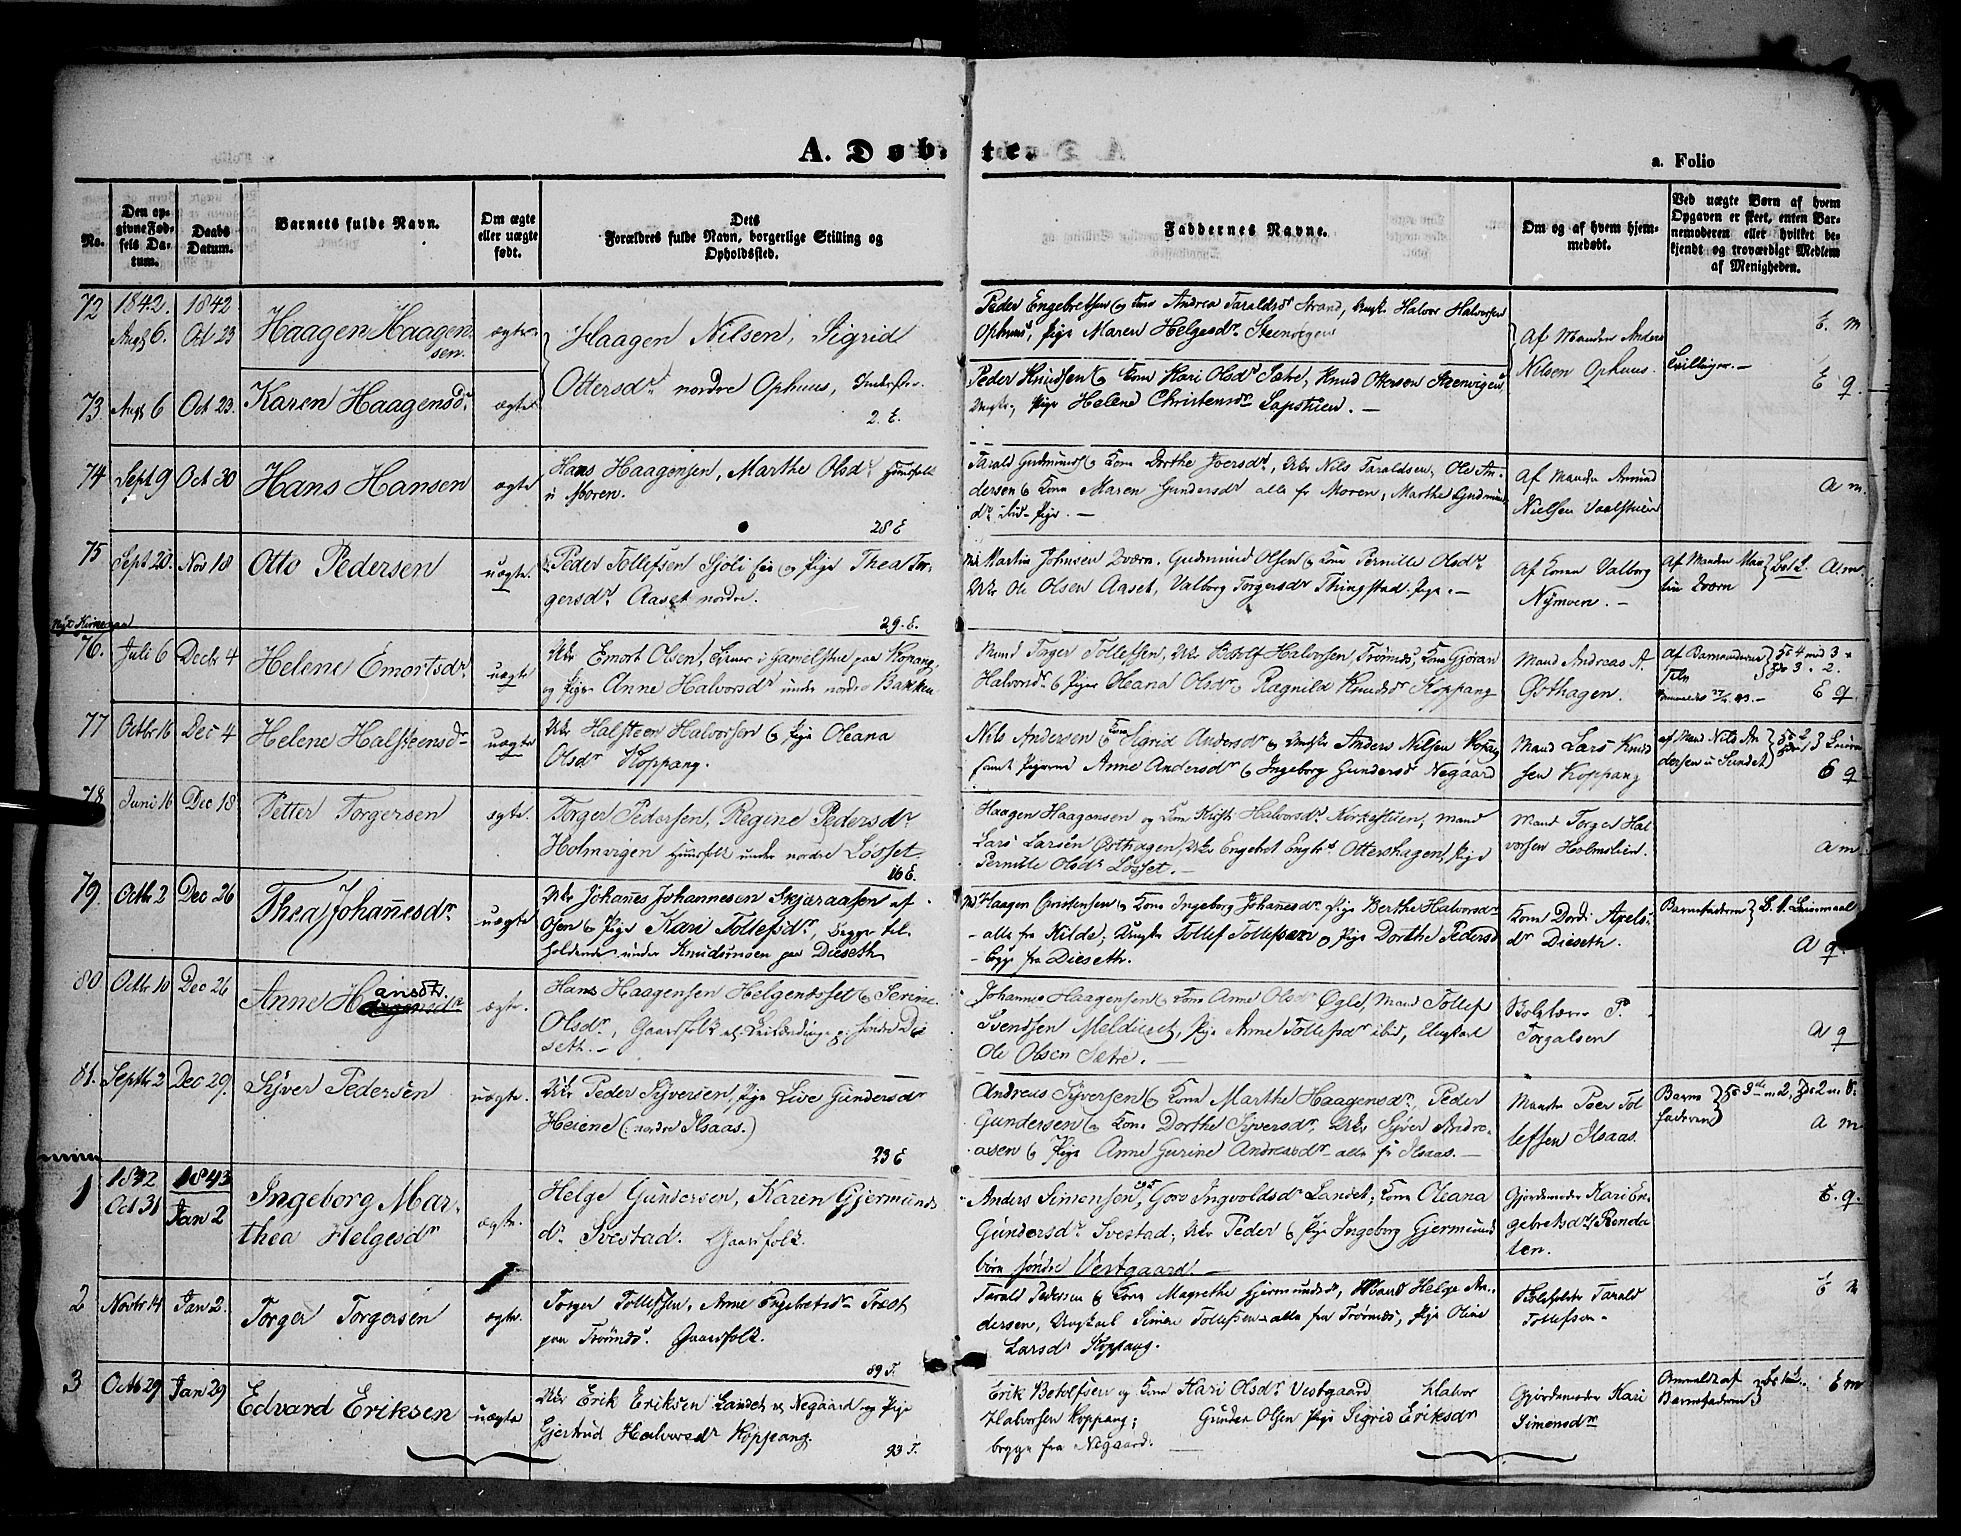 A. Døbte.
a. Folio
No.
Den op-
givne Fød-
sels Da-
tum.
Daabs
Datum.
Barnets fulde Navn.
Om ægte
eller uægte
født.
Dets
Forældres fulde Navn, borgerlige Stilling og
Opholdssted.
Faddernes Navne.
Om og af hvem hjem-
medøbt.
Ved uægte Børn af hvem
Opgaven er skeet, enten Bar-
nemoderen eller hvilket be-
kjendt og troværdigt Medlem
af Menigheden.
72 1842. Aug 6. 1842 Oct 23
Haagen Haagen-
sen.
ægte
Haagen Nilsen, Sigrid
Ottersdr nordre Ophuus,
2. E.
Peder Engebretsen og Kone Andrea Taraldsdr Strand, Ungk. Halvor Halvorsen
Ophuus, Pige Maren Helgesdr Steenvigen
Af Manden Anders
Nilsen Ophuus.
Tvillinger.
E. m
73 Aug 6 Oct 23.
Karen Haagensdr
ægte
Peder Knudsen og Kone Kari Olsdr Sætre, Knud Ottersen Steenvigen,
Ungk., Pige Helene Christensdr Lapstuen.
E q.
74 Sept 9 Oct 30
Hans Hansen
ægte
Hans Haagensen, Marthe Olsdr Huusfolk
u Moren.
28 E
Tarald Gudmunds og Kone Dorthe Iversdr, Ukr Nils Taraldsen, Ole An-
dersen og Kone Maren Gundersdr alle fr Moren, Marthe Gudmunds
dr ibid Pige.
Af Manden Amund
Nielsen Vaalstuen
a m.
75 Sept 20. Nov 18
Otto Pedersen
uægte.
Peder Tollefsen Sjøli og Pige Thea Tor-
gersdr Aaset nordre.
29. E.
Martin Johnsen Qværn. Gudmund Olsen og Kone Pernille Olsdr
Ukr Ole Olsen Aaset, Valborg Torgersdr Thingstad. Pige.
Af Konen Valborg
Nymoen.
Af Manden Mar-
tin Qværn
A. m.
Nyt Kirkeaar
76. Juli 6 Decbr 4
Helene Emortsdr
uægte
Ukr Emort Olsen, paa Kopang,
og Pige Anne Halvorsdr under nordre Bakken
Mand Torger Tollefsen, Ukr Botolf Halvorsen, Trønnes, Kone Gjøran
Halvorsdr og Piger Oleana Olsdr og Ragnild Knudsdr Koppang
Mand Andreas A.
Østhagen.
af Barnemoderen
E q
77 Octbr 16 Dec 4
Helene Halsteensdr
uægte
Ukr Halsteen Halvorsen og Pige Oleana
Olsdr Koppang.
Nils Andersen Kone Sigrid Andersdr og Anders Nilsen Kopang
samt Pigerne Anne Andersdr og Ingeborg Gundersd Negaard
Mand Lars Knud
sen Koppang
af Mand Nils An
dersen u Sundet
E q
78 Juni 16 Dec 18
Petter Torgersen
ægte.
Torger Pedersen, Regine Pedersdr
Holmengen Huusfolk under nordre Løsset
16 E.
Haagen Haagensen og Kone Halvorsdr Kirkestuen, Mand
Lars Larsen Østhagen, Ukr Engebret Ottershagen, Pige
Pernille Olsdr Løsset.
Mand Torger Hal
vorsen Holmelien.
a m.
79. Octbr 2 Dec 26
Thea Johannesdr
uægte
Ukr Johannes Johannesen Skjæraasen af
Osen og Pige Kari Tollefsdr, begge til
holdende under Knudsmoen paa Dieseth
Haagen Christensen og Kone Ingeborg Johanesdr Pige Berthe Halvorsdr
alle fra Kilde; Ungk Tollef Tollefsen og Pige Dorthe Pedersd
begge fr Dieseth.
Kone Dordi Axels-
dr Dieseth.
Barnefaderen
A q.
80 Octbr 10 Dec 26
Anne Hansdtr.
ægte.
Hans Haagensen Helgenæsset og Serine
Olsdr, Gaardfolk søndre Die
seth.
Johannes Haagensen og Kone Anne Olsdr Øgle, Mand Tollef
Svendsen Meldieset, Pige Anne Tollefsdr ibid, Ungkarl
Ole Olsen Sætre.
Skolelærer P.
Torgalsen
a q
81. Septbr 2 Dec 29.
Syver Pedersen
uægte.
Ukr Peder Syversen, Pige Live Gundersdr
Heiene (nordre Ilsaas.)
23 E
Andreas Syversen og Kone Marthe Haagensdr, Peder
Gundersen og Kone Dorthe Syversdr, Ukr Syver Andre-
asen og Pige Anne Gurine Andreasdr alle fr Ilsaas.
Manden Peer Tol
lefsen Ilsaas.
Barne
faderen
a m
1 1842 Oct 31 1843 Jan 2
Ingeborg Mar-
thea Helgesdr
ægte.
Helge Gundersen, Karen Gjermunds
dr Svestad. Gaardfolk.
Anders Simensen, Goro Ingvoldsdr Landet; Kone Oleana
Gundersdr Svestad, Ukr Peder og Pige Ingeborg Gjermund
børn søndre Vestgaard.
Gjordemoder Kari En-
gebretsdr Renda
len.
E. q.
2 Novbr 14 Jan 2.
Torger Torgersen
ægte.
Torger Tollefsen, Anne Engebretsdr Trøst
paa Trønnes. Gaardfolk.
89 T.
Tarald Pedersen og Kone Magrethe Gjermundsdr, Mand Helge An-
dersen, Ungkarl Simen Tollefsen alle fra Trønnes, Pige Oline
Larsdr Koppang.
Skoleholder Tarald
Tollefsen
E m
3 Octb 29 Jan 29
Edvard Eriksen
uægte
Ukr Erik Eriksen Landet v Negaard og Pige
Gjertrud Halvorsdr Koppang.
93 T.
Erik Botolfsen og Kone Kari Olsdr Vestgaard Halvor
Halvorsen Koppang; Gunder Olsen Pige Sigrid Eriksdr
begge fra Negaard.
Gjordemoder Kari
Simensdr
Anmeldt af
Barnefaderen
E m